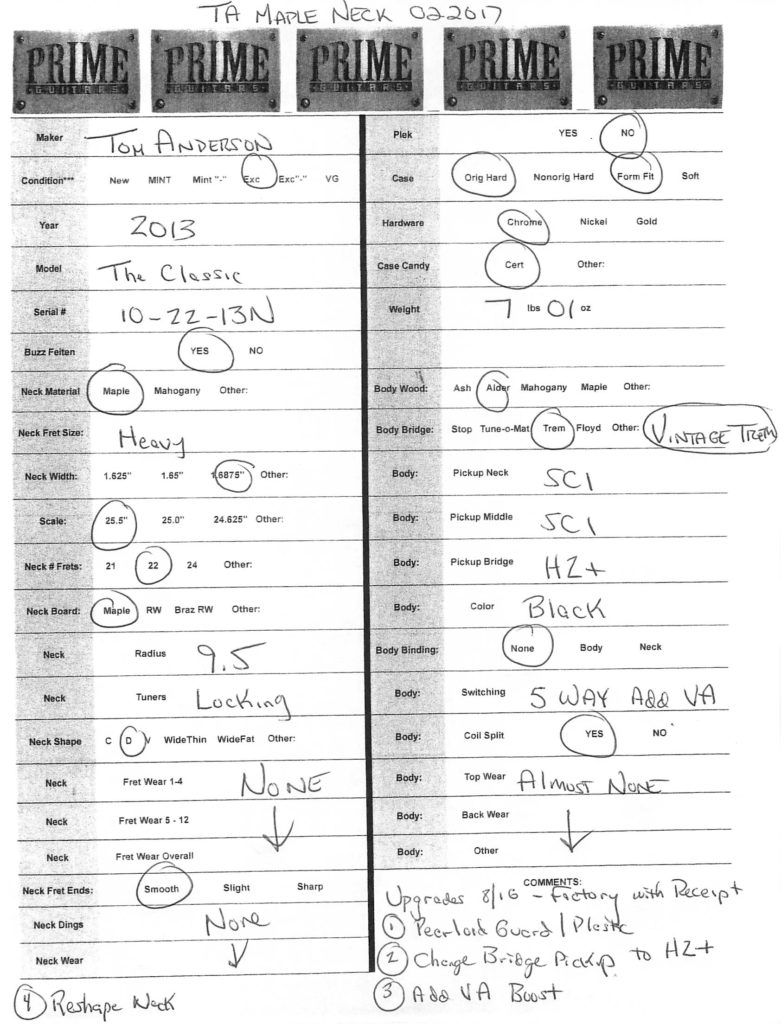 TA MAPLE NECK 022017
PRIME PRIME PRIME PRIME PRIME
GUITARS GUITARS GUITARS GUITARS GUITARS
Maker TOM ANDERSON
Condition*** New MINT Mint "-" Exc Exc"-" VG
Year 2013
Model The Classic
Serial # 10-22-13N
Buzz Feiten YES NO
Neck Material Maple Mahogany Other:
Neck Fret Size: Heavy
Neck Width: 1.625" 1.65" 1.6875" Other:
Scale: 25.5" 25.0" 24.625" Other:
Neck # Frets: 21 22 24 Other:
Neck Board: Maple RW Braz RW Other:
Neck Radius 9.5
Neck Tuners Locking
Neck Shape C D V WideThin WideFat Other:
Neck Fret Wear 1-4 NONE
Neck Fret Wear 5 - 12
Neck Fret Wear Overall
Neck Fret Ends: Smooth Slight Sharp
Neck Dings None
Neck Wear
4 Reshape Neck
Plek YES NO
Case Orig Hard Nonorig Hard Form Fit Soft
Hardware Chrome Nickel Gold
Case Candy Cert Other:
Weight 7 lbs 01 oz
Body Wood: Ash Alder Mahogany Maple Other:
Body Bridge: Stop Tune-o-Mat Trem Floyd Other: VINTAGE TREM
Body: Pickup Neck SC1
Body: Pickup Middle SC1
Body: Pickup Bridge H2+
Body: Color Black
Body Binding: None Body Neck
Body: Switching 5 WAY Add VA
Body: Coil Split YES NO
Body: Top Wear Almost None
Body: Back Wear
Body: Other
COMMENTS:
Upgrades 8/16 - Factory with Receipt
1 Pearloid Guard / Plastic
2 Change Bridge Pickup to H2+
3 Add VA Boost